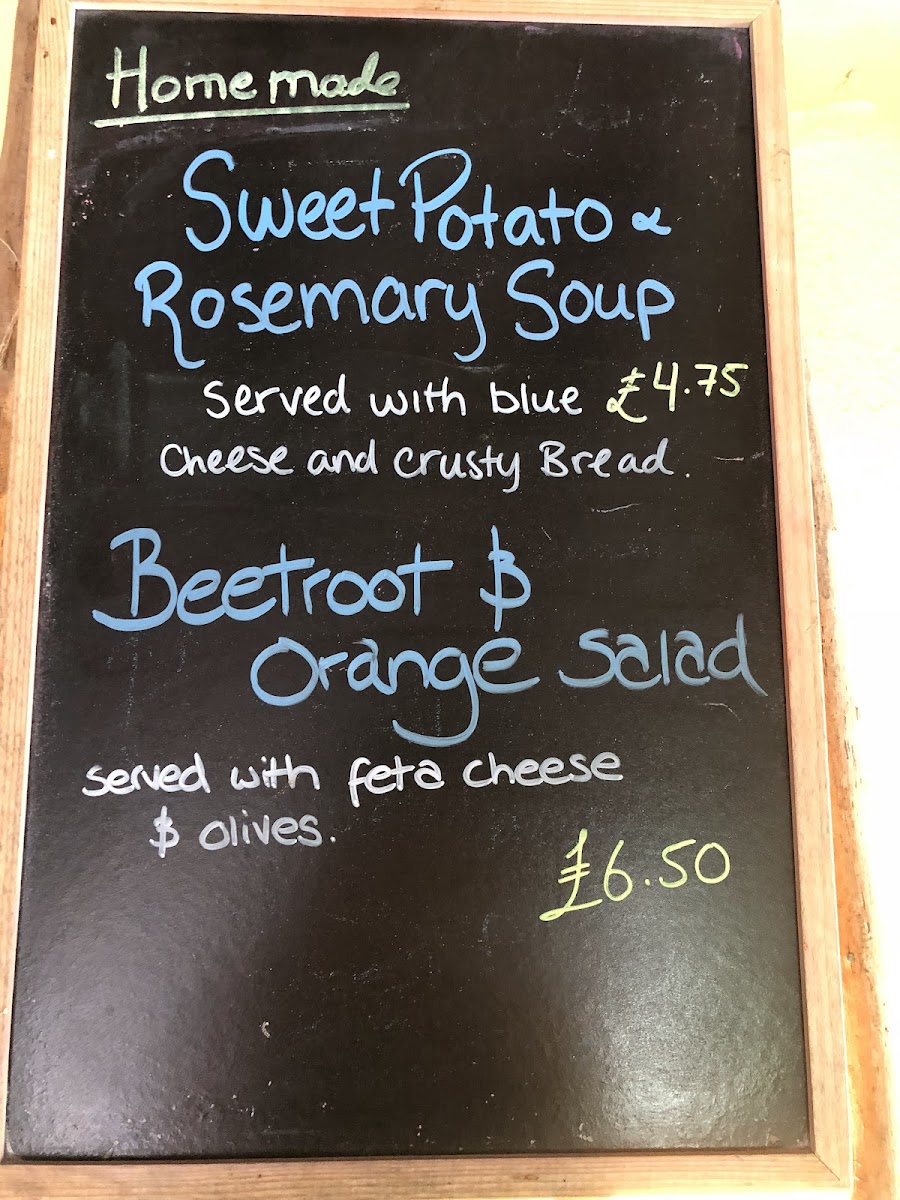 Home made
Sweet Potato &
Rosemary Soup
Served with blue £4.75
Cheese and crusty Bread.
Beetroot &
Orange Salad
served with feta cheese
& olives.
£6.50